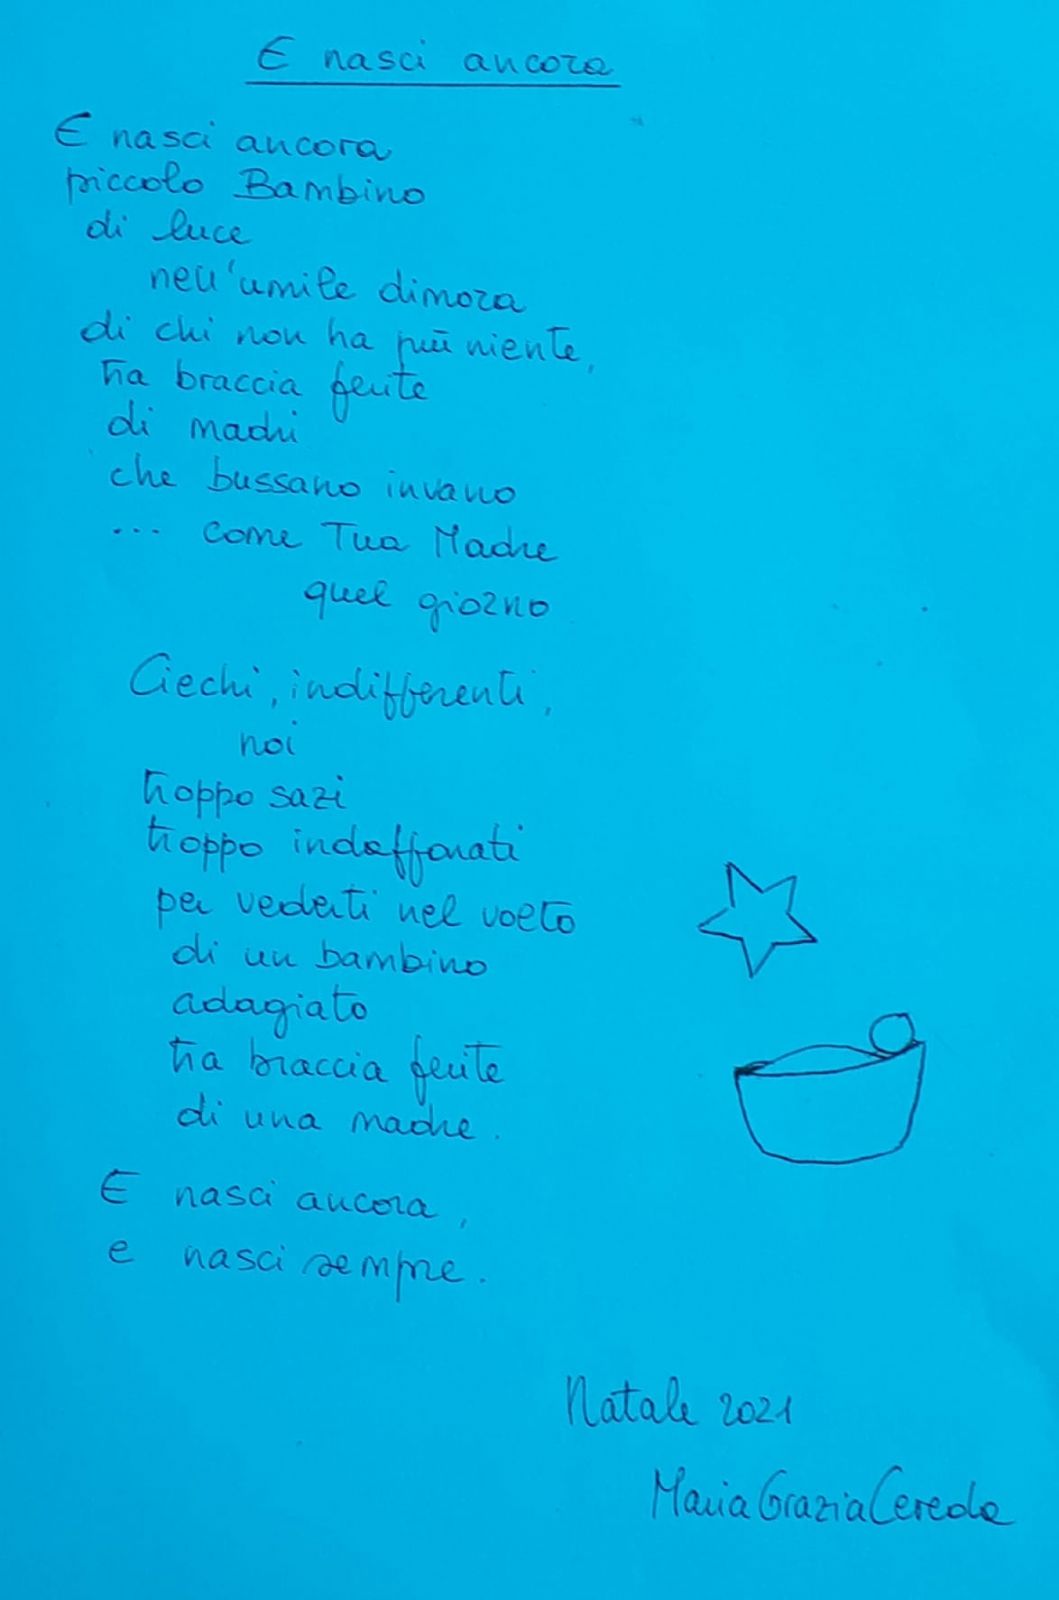 E nasci ancora
E nasci ancora
piccolo Bambino
di luce
nell'umile dimora
di chi non ha più niente,
tra braccia ferite
di madri
che bussano invano
... come Tua Madre
quel giorno
Ciechi, indifferenti,
noi
troppo sazi
troppo indaffarati
per vederti nel volto
di un bambino
adagiato
tra braccia ferite
di una madre.
E nasci ancora,
e nasci sempre.
Natale 2021
Maria Grazia Cereda